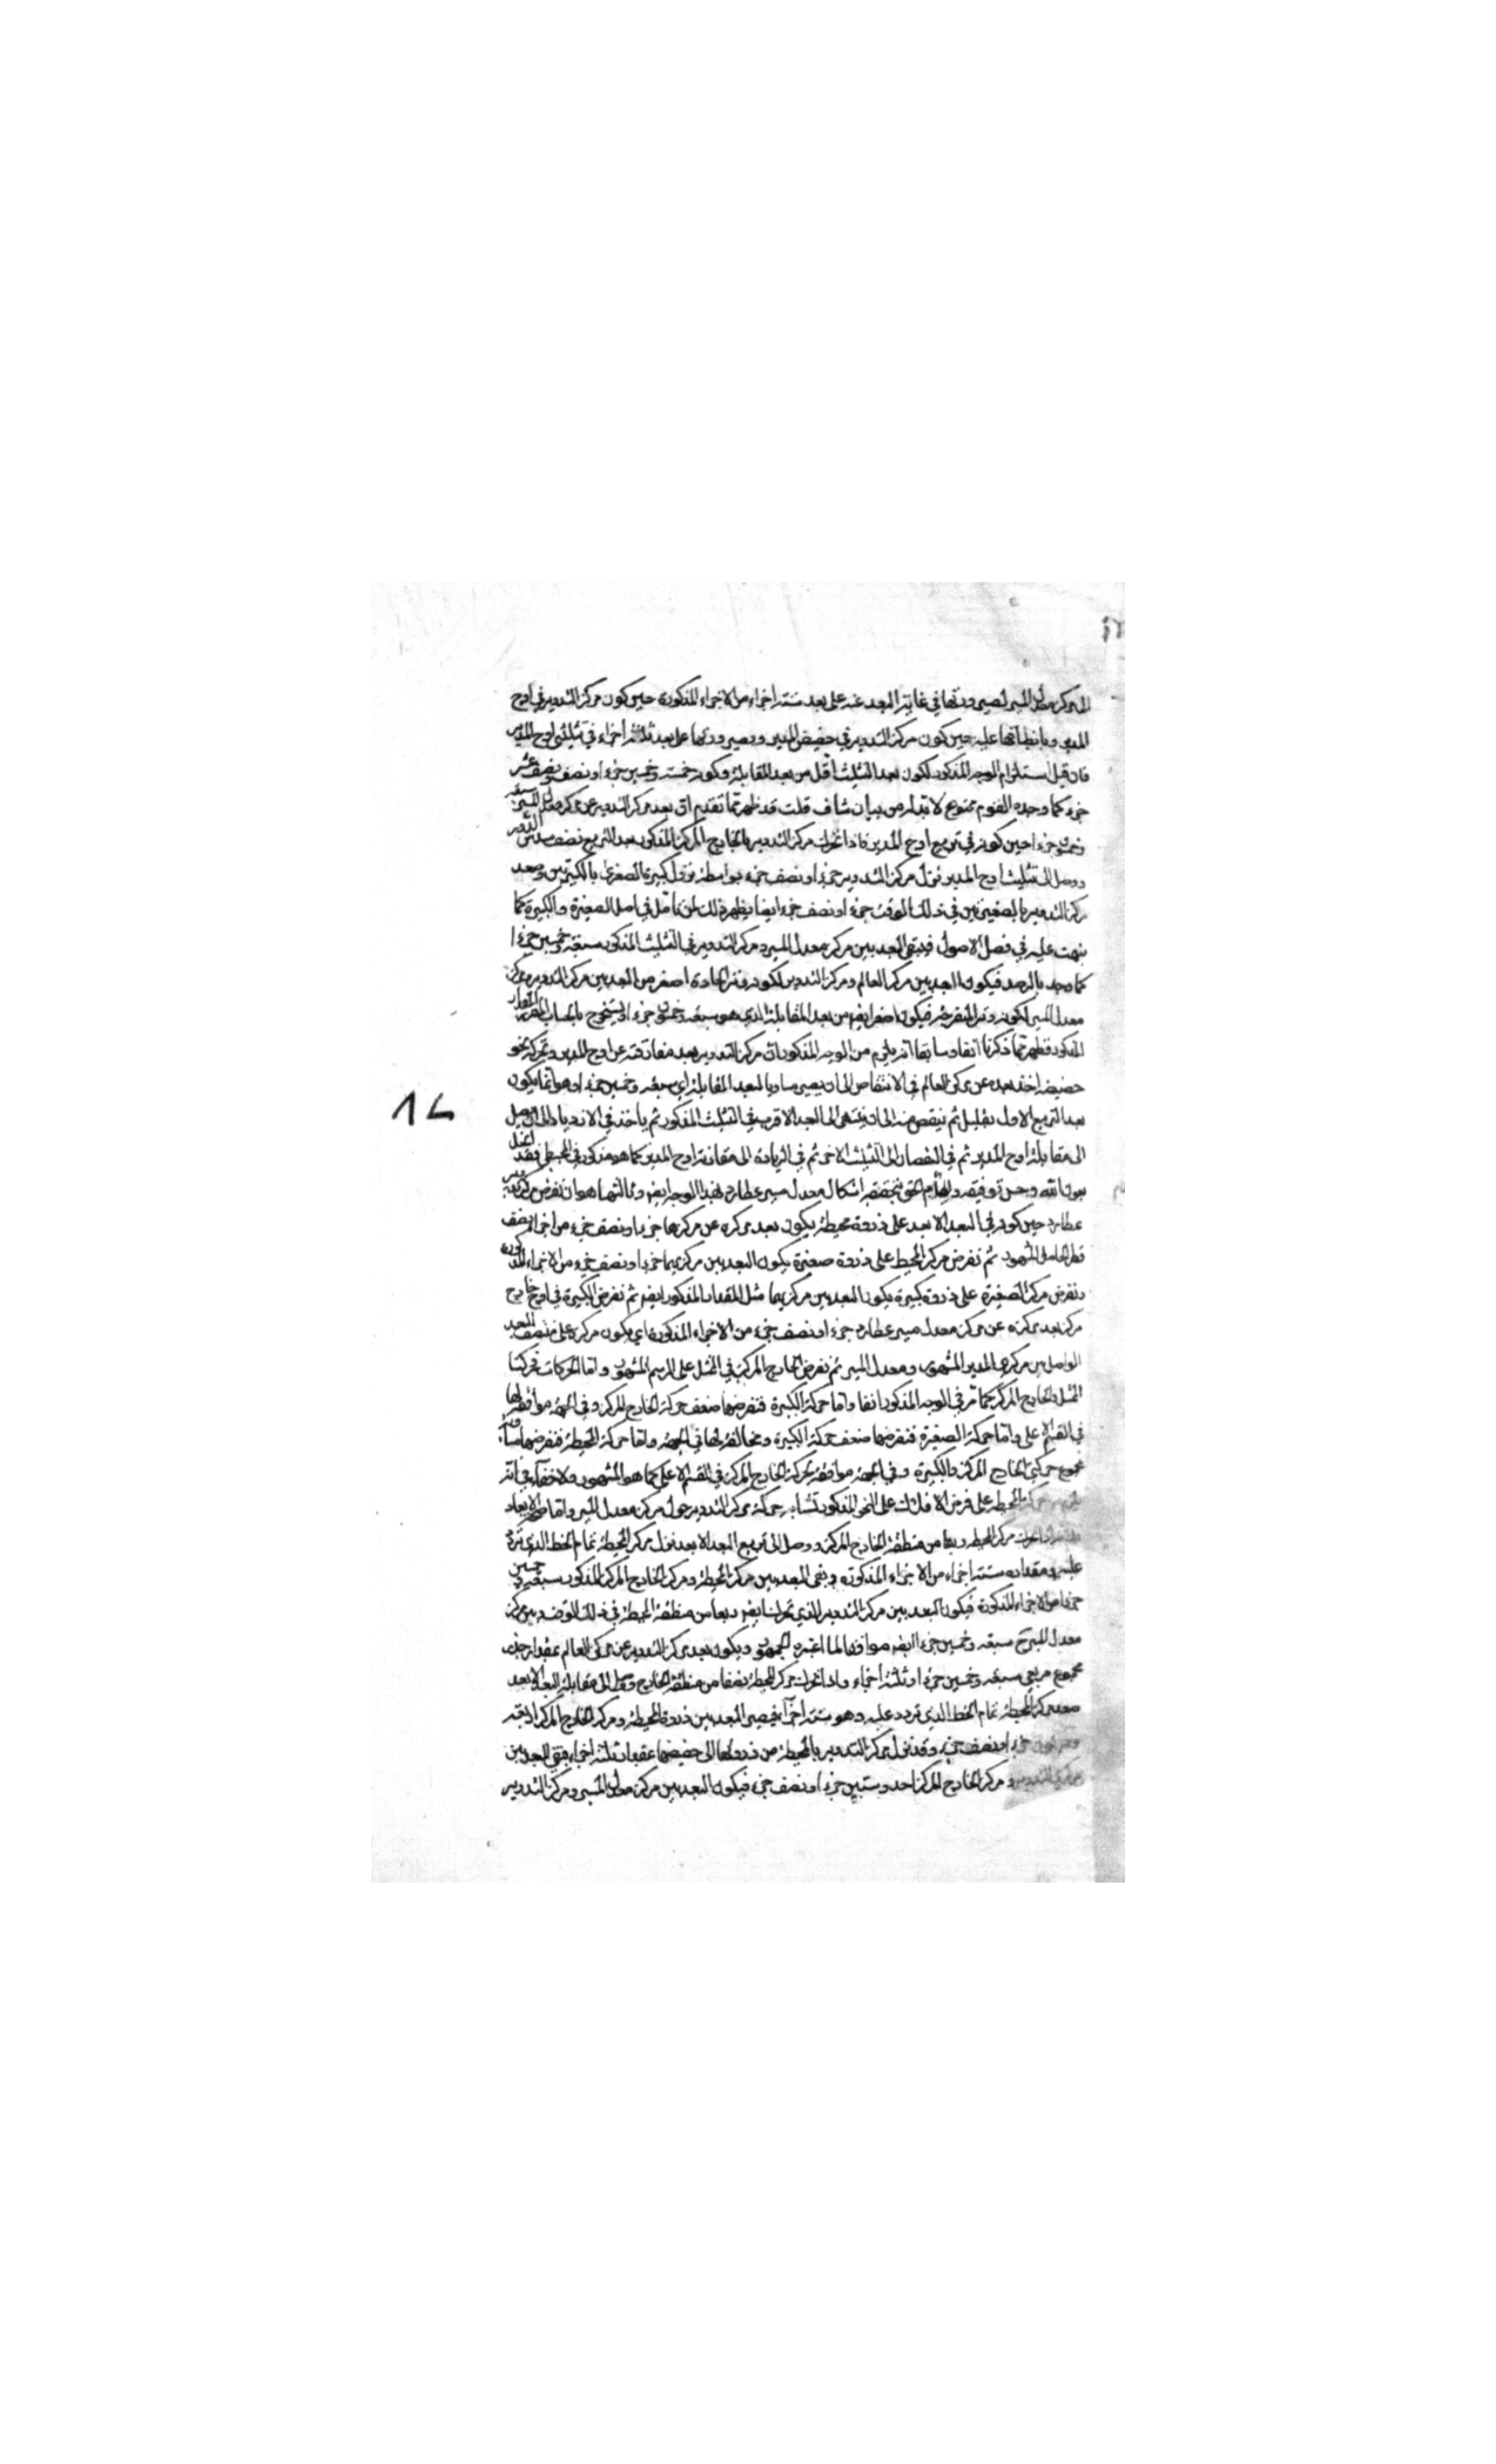 المركز معدل المسير لصيرورتها في غاية البعد عنه على بعد ستة اجزاء من الاجزاء المذكورة حين كون مركز التدوير في اوج
المدير وبانطباقها عليه حين كون مركز التدوير في حضيض المدير وبصيرورتها على بعد ثلاثة أجزاء في تثليثي اوج المدير
فان قيل استلزام الوجه المذكور لكون بعد التثليث أقل من بعد المقابلة وكونه خمسة وخمسين جزءا ونصف ونصف عشر
جزء كما وجده القوم ممنوع لا بد له من بيان شاف قلت قد ظهر مما تقدم ان بعد مركز التدوير عن مركز معدل المسير سبعة
وخمسون جزءا حين كونه في تربيع اوج المدير فاذا تحرك مركز التدوير بالخارج المركز المذكور بعد التربيع نصف سدس الدور
ووصل الى تثليث اوج المدير نزل مركز التدوير جزءا ونصف جزء بواسطة نزول كبيرة الصغرى بالكبيرتين وصعد
مركز التدوير بالصغيرتين في ذلك الوقت جزءا ونصف جزء ايضا يظهر ذلك لمن تأمل في اصل الصغيرة والكبيرة كما
نبهت عليه في فصل الاصول فيبقى البعد بين مركز معدل المسير ومركز التدوير في التثليث المذكور سبعة وخمسين جزءا
كما وجد بالرصد فيكون البعد بين مركز العالم ومركز التدوير لكونه وتر الحادة اصغر من البعد بين مركز التدوير ومركز
معدل المسير لكونه وتر المنفرجة فيكون اصغر ايضا من بعد المقابلة الذي هو سبعة وخمسون جزءا ويستخرج بالحساب المقدار
المذكور فظهر مما ذكرنا آنفا وسابقا انه يلزم من الوجه المذكور ان مركز التدوير بعد مفارقته عن اوج المدير وتحركه نحو
حضيضه اخذ بعده عن مركز العالم في الانتقاص الى ان يصير مساويا لبعد المقابلة اي سبعة وخمسين جزءا وهو انما يكون
بعد التربيع الاول بقليل ثم ينقص منه الى ان ينتهي الى البعد الاقرب في التثليث المذكور ثم يأخذ في الازدياد الى ان يصل
الى مقابلة اوج المدير ثم في النقصان الى التثليث الاخر ثم في الزيادة الى مقارنة اوج المدير كما هو مذكور في المجسطي فقد انحل
بعون الله وحسن توفيقه اشكال معدل مسير عطارد بهذا الوجه ايضا وثالثها هو ان نفرض مركز تدوير
عطارد حين كونه في البعد الابعد على ذروة محيطة يكون بعد مركزه عن مركزها جزءا ونصف جزء من اجزاء نصف
قطر الحامل المشهود ثم نفرض مركز المحيط على ذروة صغيرة يكون البعد بين مركزيهما جزءا ونصف جزء من الاجزاء المذكورة
ونفرض مركز الصغيرة على ذروة كبيرة يكون البعد بين مركزيهما مثل المقدار المذكور ايضا ثم نفرض الكبيرة في اوج خارج
مركز بعد مركزه عن مركز معدل مسير عطارد جزءا ونصف جزء من الاجزاء المذكورة اي يكون مركزه على منتصف البعد
الواصل بين مركزي المدير المشهور ومعدل المسير ثم نفرض الخارج المركز في الممثل على الرسم المشهور واما الحركات فحركتا
الممثل والخارج المركز كما مر في الوجه المذكور انفا واما حركة الكبيرة فنفرضها ضعف حركة الخارج المركز وفي الجهة موافقة لها
في القسم الاعلى واما حركة الصغيرة فنفرضها ضعف حركة الكبيرة ومخالفة لها في الجهة واما حركة المحيطة فنفرضها مساوية
مجموع حركتي الخارج المركز والكبيرة وفي الجهة موافقة لحركة الخارج المركز في القسم الاعلى كما هو المشهور ولا خفاء في انه
المحيطة على فرض الافلاك على النحو المذكور تشابه حركة مركز التدوير حول مركز معدل المسير واما الابعاد
تحرك مركز المحيطة ربعا من منطقة الخارج المركز ووصل الى تربيع البعد الابعد نزل مركز المحيطة تمام الخط الذي تردد
عليه ومقداره ستة اجزاء من الاجزاء المذكورة وبقي البعد بين مركز المحيطة ومركز الخارج المركز المذكور سبعة وخمسين
جزءا من الاجزاء المذكورة فيكون البعد بين مركز التدوير الذي تحرك ايضا ربعا من منطقة المحيطة في ذلك الوقت وبين مركز
معدل المسير سبعة وخمسين جزءا ايضا موافقا لما اعتبره الجمهور ويكون بعد مركز التدوير عن مركز العالم بمقدار جذر
مجموع مربعي سبعة وخمسين جزءا وثلثة اجزاء واذا تحرك مركز المحيطة نصفا من منطقة الخارج ووصل الى مقابلة البعد الابعد
صعد مركز المحيطة تمام الخط الذي تردد عليه وهو ستة اجزاء فيصير البعد بين ذروة المحيطة ومركز الخارج المركز اربعة
جزءا ونصف جزء وقد نزل مركز التدوير بالمحيطة من ذروتها الى حضيضها بمقدار ثلثة اجزاء فبقي البعد بين
مركز التدوير ومركز الخارج المركز احد وستين جزءا ونصف جزء فيكون البعد بين مركز معدل المسير ومركز التدوير